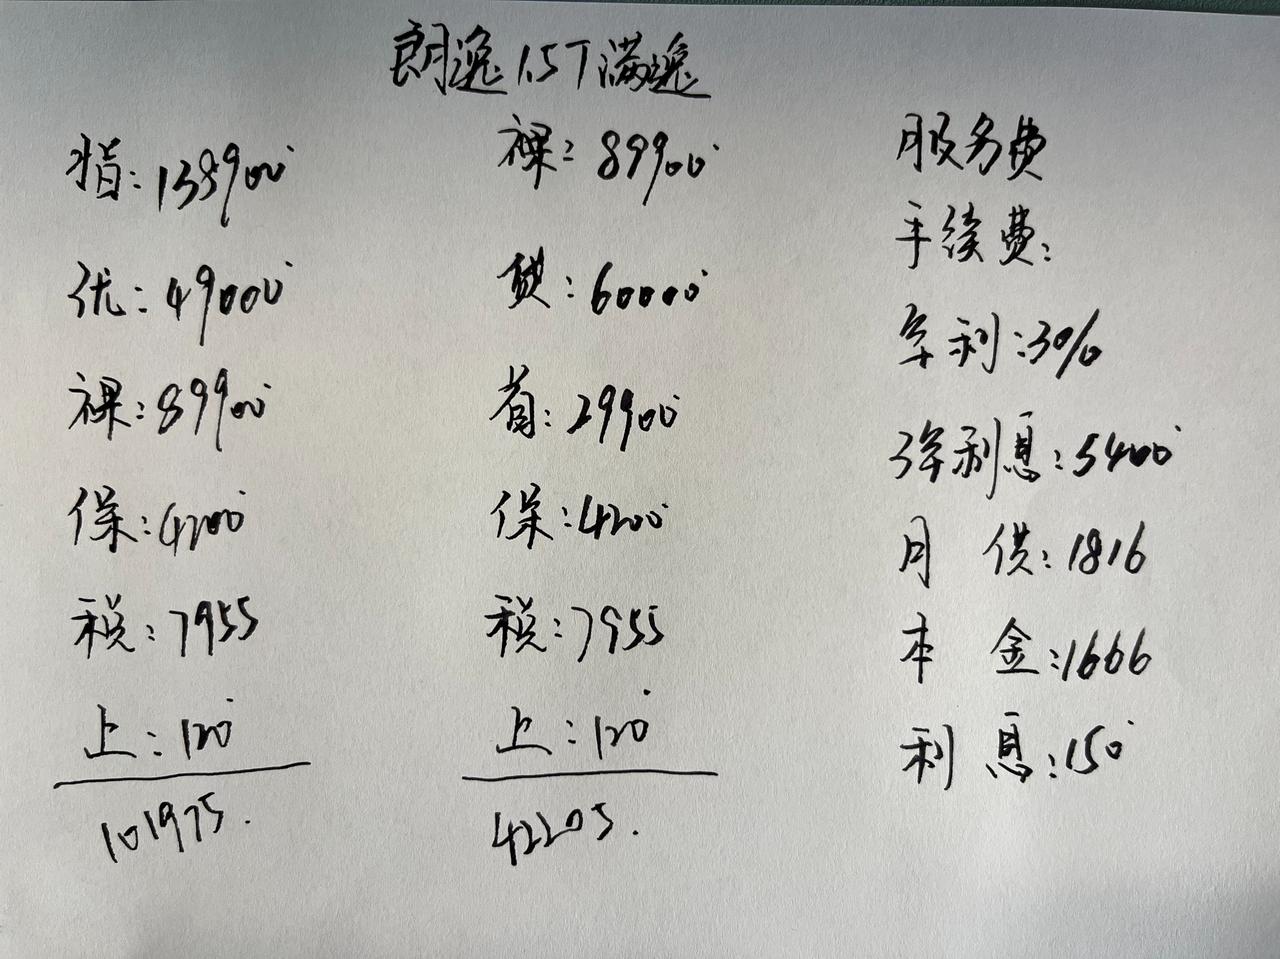 朗逸1.5T满逸
指:138900
优:49000
裸:89900
保:4200
税:7955
上:120
101975.
裸:89900
贷:60000
首:29900
保:4200
税:7955
上:120
42205.
服务费
手续费:
年利:3%
3年利息:5400
月 供:1816
本 金:1666
利 息:150